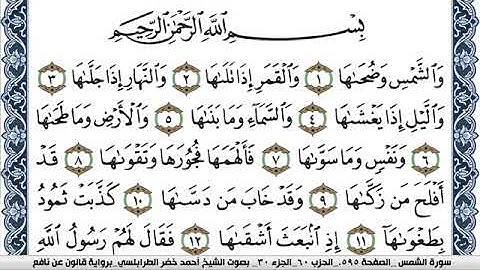 بِسْمِ اللَّهِ الرَّحْمَٰنِ الرَّحِيمِ
وَالشَّمْسِ وَضُحَىٰهَا ١ وَالْقَمَرِ إِذَا تَلَىٰهَا ٢ وَالنَّهَارِ إِذَا جَلَّىٰهَا ٣
وَالَّيْلِ إِذَا يَغْشَىٰهَا ٤ وَالسَّمَآءِ وَمَا بَنَىٰهَا ٥ وَالْأَرْضِ وَمَا طَحَىٰهَا
٦ وَنَفْسٍ وَمَا سَوَّىٰهَا ٧ فَأَلْهَمَهَا فُجُورَهَا وَتَقْوَىٰهَا ٨ قَدْ
أَفْلَحَ مَن زَكَّىٰهَا ٩ وَقَدْ خَابَ مَن دَسَّىٰهَا ١٠ كَذَّبَتْ ثَمُودُ
بِطَغْوَىٰهَا ١١ إِذِ انۢبَعَثَ أَشْقَىٰهَا ١٢ فَقَالَ لَهُمْ رَسُولُ اللَّهِ
سورة الشمس _ الصفحة ٥٩٥_ الحزب ٦٠_ الجزء ٣٠_ بصوت الشيخ أحمد خضر الطرابلسي _برواية قالون عن نافع